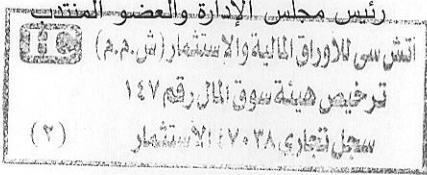 رئيس مجلس الإدارة والعضو المنتدب
اتش سى للاوراق المالية والاستثمار (ش.م.م)
ترخيص هيئة سوق المال رقم ١٤٧
سجل تجارى ٤٧٠٣٨ الاستثمار (٢)